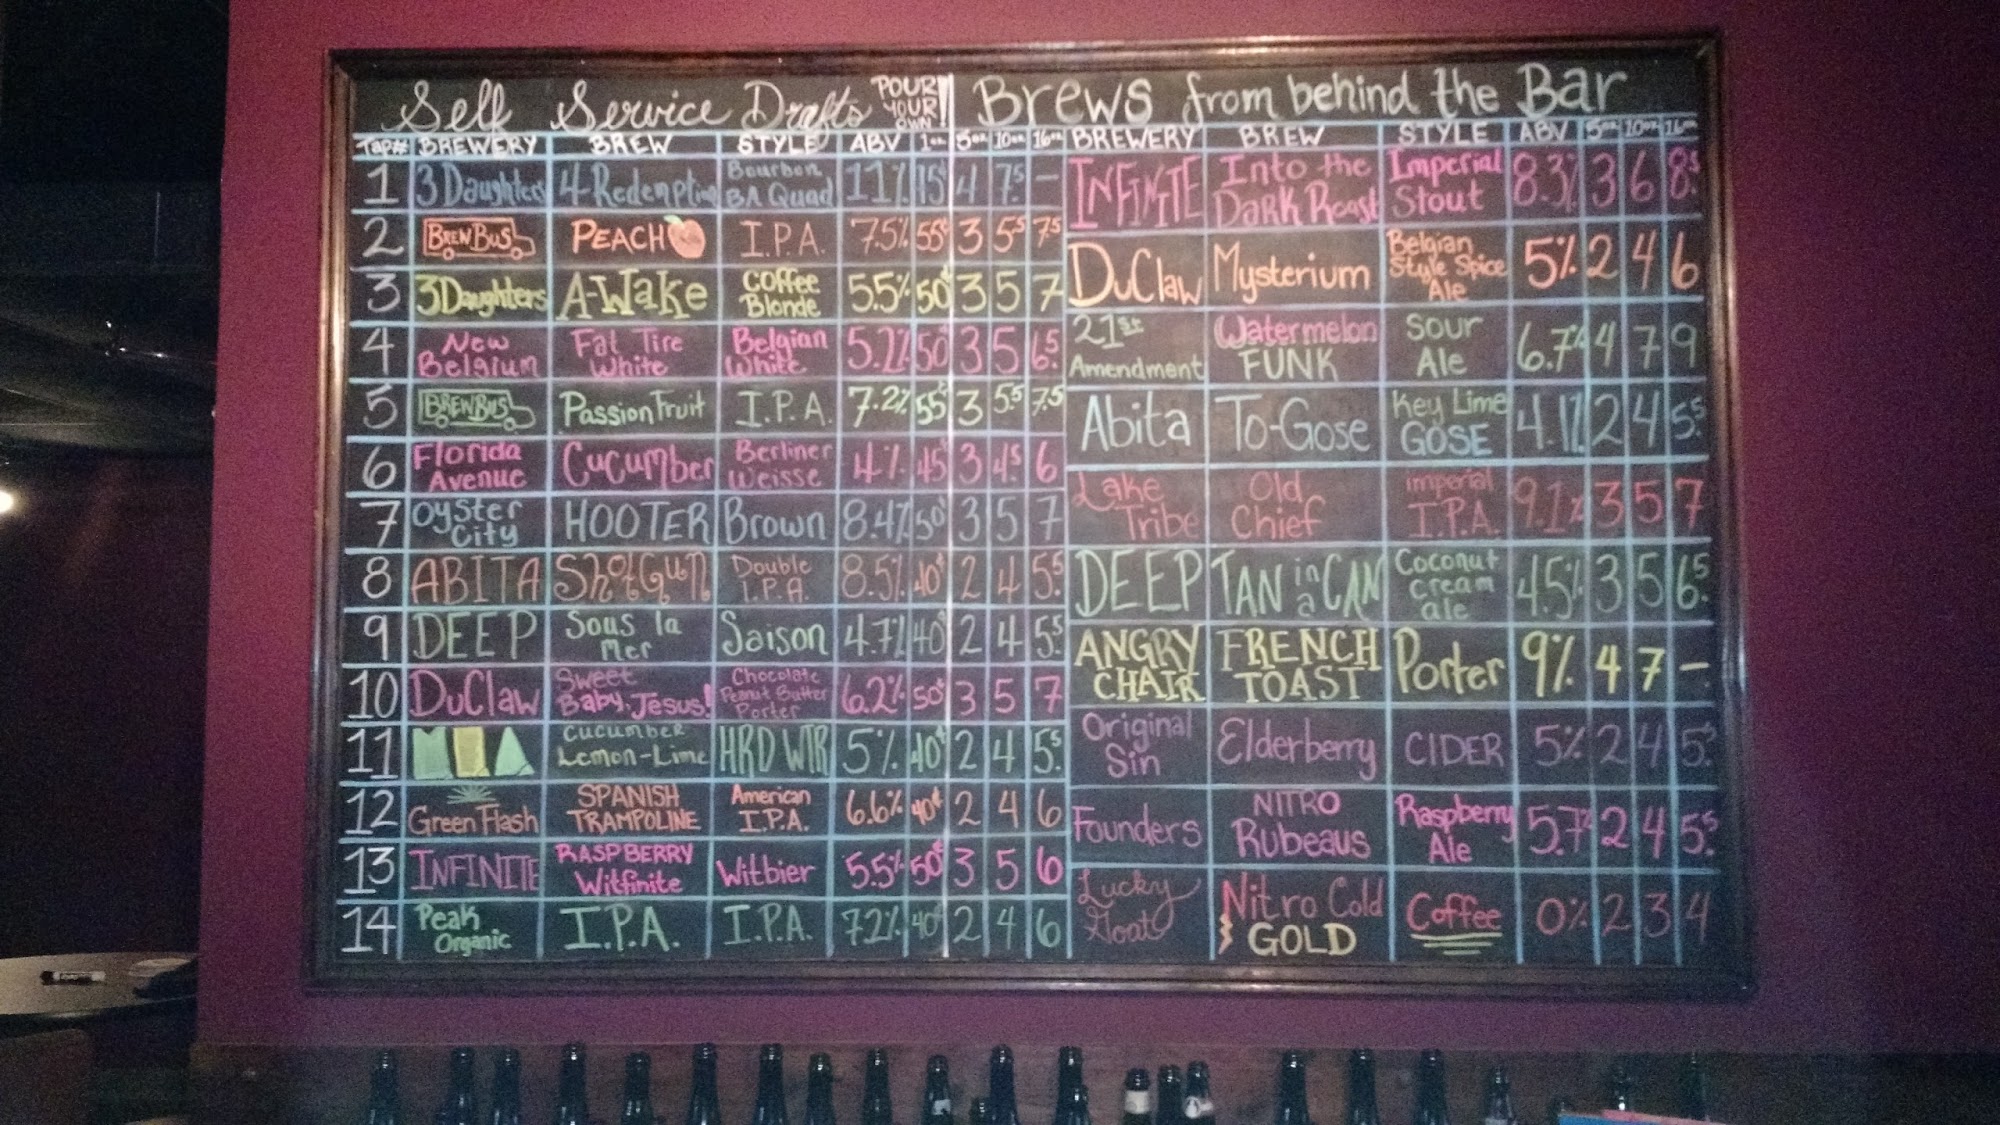 Self Service Drafts POUR YOUR OWN!
TAP# BREWERY BREW STYLE ABV 1oz 5oz 10oz 16oz
1 3 Daughters 4-Redemption Bourbon BA Quad 11% 75¢ 4 7.5 -
2 BREW BUS PEACH I.P.A. 7.5% 55¢ 3 5.5 7.5
3 3 Daughters A-Wake Coffee Blonde 5.5% 50¢ 3 5 7
4 New Belgium Fat Tire White Belgian White 5.2% 50¢ 3 5 6.5
5 BREW BUS Passion Fruit I.P.A. 7.2% 55¢ 3 5.5 7.5
6 Florida Avenue Cucumber Berliner Weisse 4% 45¢ 3 4.5 6
7 Oyster City HOOTER Brown 8.4% 50¢ 3 5 7
8 ABITA ShotGun Double I.P.A. 8.5% 40¢ 2 4 5.5
9 DEEP Sous la Mer Saison 4.7% 40¢ 2 4 5.5
10 DuClaw Sweet Baby Jesus! Chocolate Peanut Butter Porter 6.2% 50¢ 3 5 7
11 Cucumber Lemon-Lime HRD WTR 5% 40¢ 2 4 5.5
12 Green Flash SPANISH TRAMPOLINE American I.P.A. 6.6% 40¢ 2 4 6
13 INFINITE RASPBERRY Witfinite Witbier 5.5% 50¢ 3 5 6
14 Peak Organic I.P.A. I.P.A. 7.2% 40¢ 2 4 6
Brews from behind the Bar
BREWERY BREW STYLE ABV 5oz 10oz 16oz
INFINITE Into the Dark Roast Imperial Stout 8.3% 3 6 8.5
DuClaw Mysterium Belgian Style Spice Ale 5% 2 4 6
21st Amendment Watermelon FUNK Sour Ale 6.7% 4 7 9
Abita To-Gose Key Lime GOSE 4.1% 2 4 5.5
Lake Tribe Old Chief Imperial I.P.A. 9.1% 3 5 7
DEEP TAN in a CAN Coconut cream ale 4.5% 3 5 6.5
ANGRY CHAIR FRENCH TOAST Porter 9% 4 7 -
Original Sin Elderberry CIDER 5% 2 4 5.5
Founders NITRO Rubeaus Raspberry Ale 5.7% 2 4 5.5
Lucky Goat Nitro Cold GOLD Coffee 0% 2 3 4